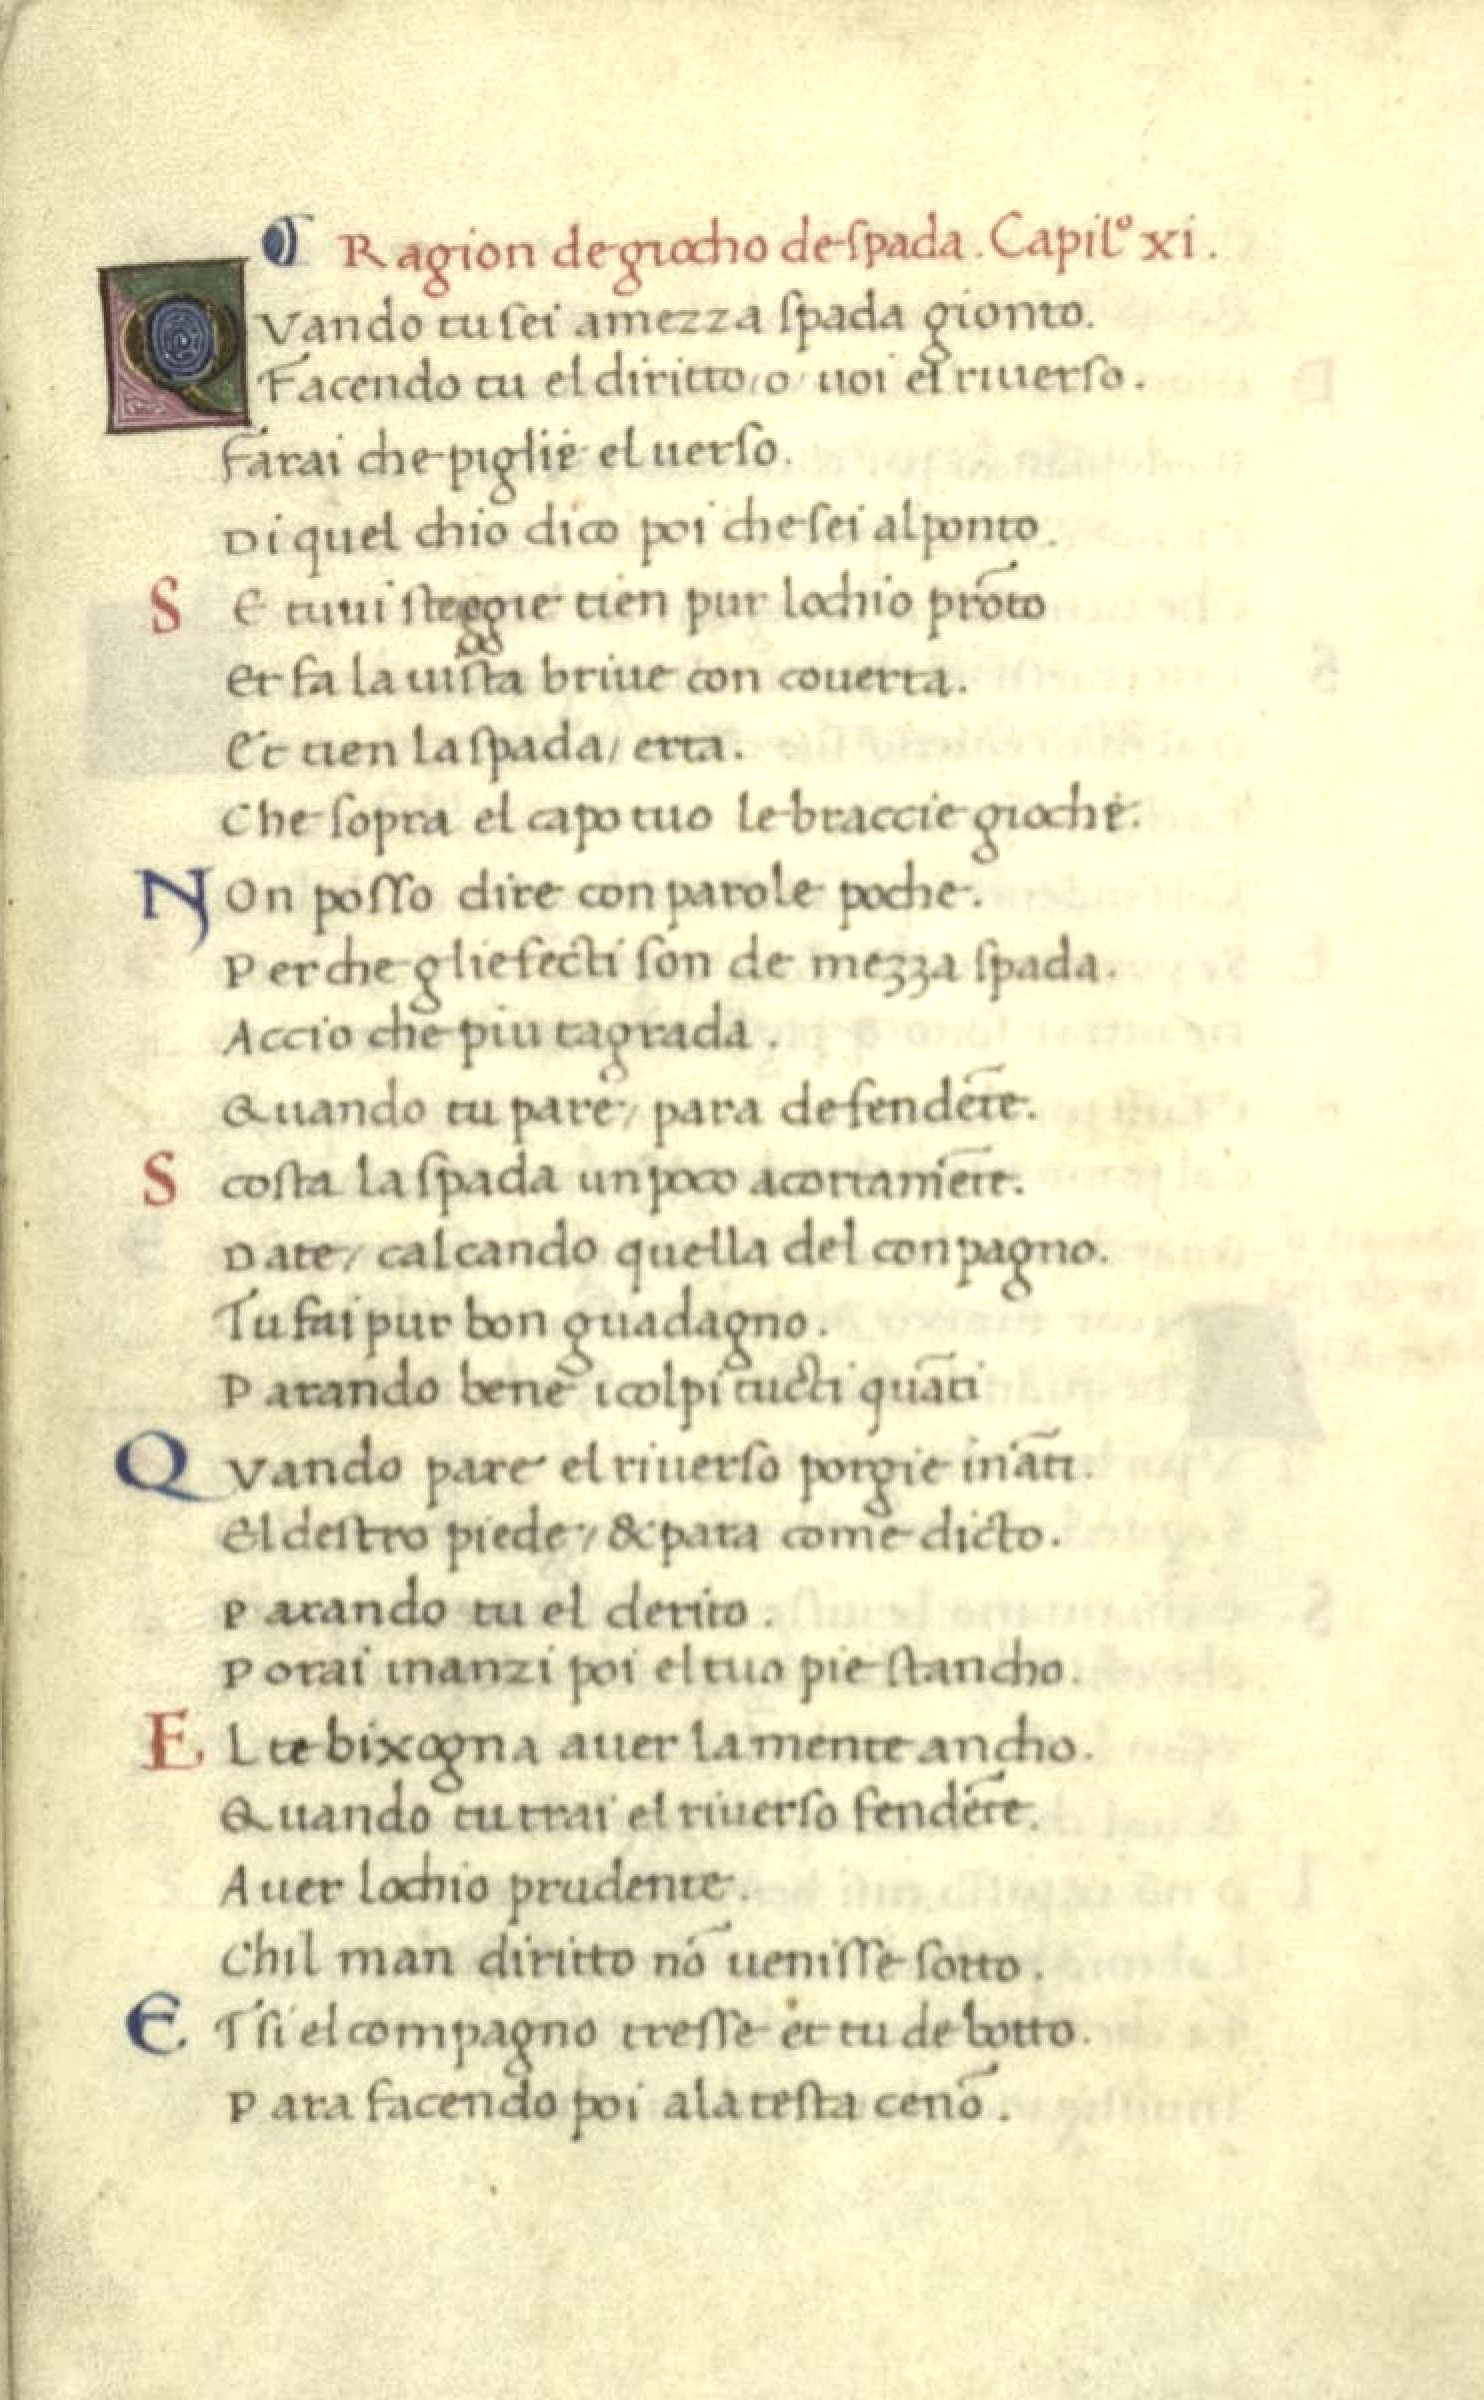 ¶ Ragion de giocho de spada. Capil.º xi.
QVando tu sei a mezza spada gionto.
Facendo tu el diritto / o / uoi el riuerso.
Farai che piglie el uerso.
Di quel chio dico poi che sei al ponto.
SE tu ui steggie tien pur lochio prōto
Et fa la uista briue con couerta.
Et tien la spada / erta.
Che sopra el capo tuo le braccie gioche.
NOn posso dire con parole poche.
Perche glie fecti son de mezza spada.
Accio che piu tagrada.
Quando tu pare / para de fendēte.
Scosta la spada un poco acortamēte.
Da te / calcando quella del conpagno.
Tu fai pur bon guadagno.
Parando bene i colpi tucti quāti
QVando pare el riuerso porgie ināti.
El destro piede / & para come dicto.
Parando tu el derito.
Porai inanzi poi el tuo pie stancho.
EL te bixogna auer la mente ancho.
Quando tu trai el riuerso fendēte.
Auer lochio prudente.
Chil man diritto nō uenisse sotto.
ET si el compagno tresse et tu de botto.
Para facendo poi a la testa cenō.